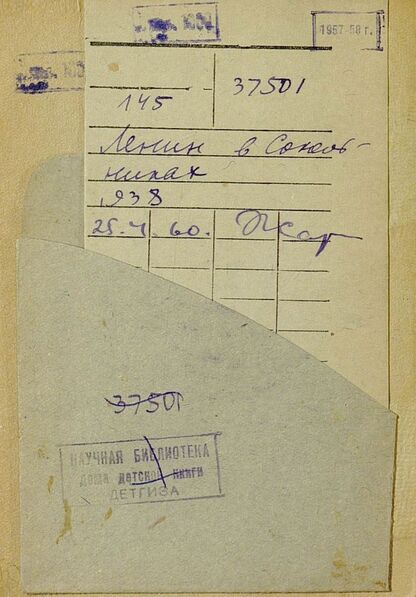 1957-58 г.
145
37501
Ленин в Соколь-
никах
1938
25.4.60.
37501
НАУЧНАЯ БИБЛИОТЕКА
ДОМА ДЕТСКОЙ КНИГИ
ДЕТГИЗА